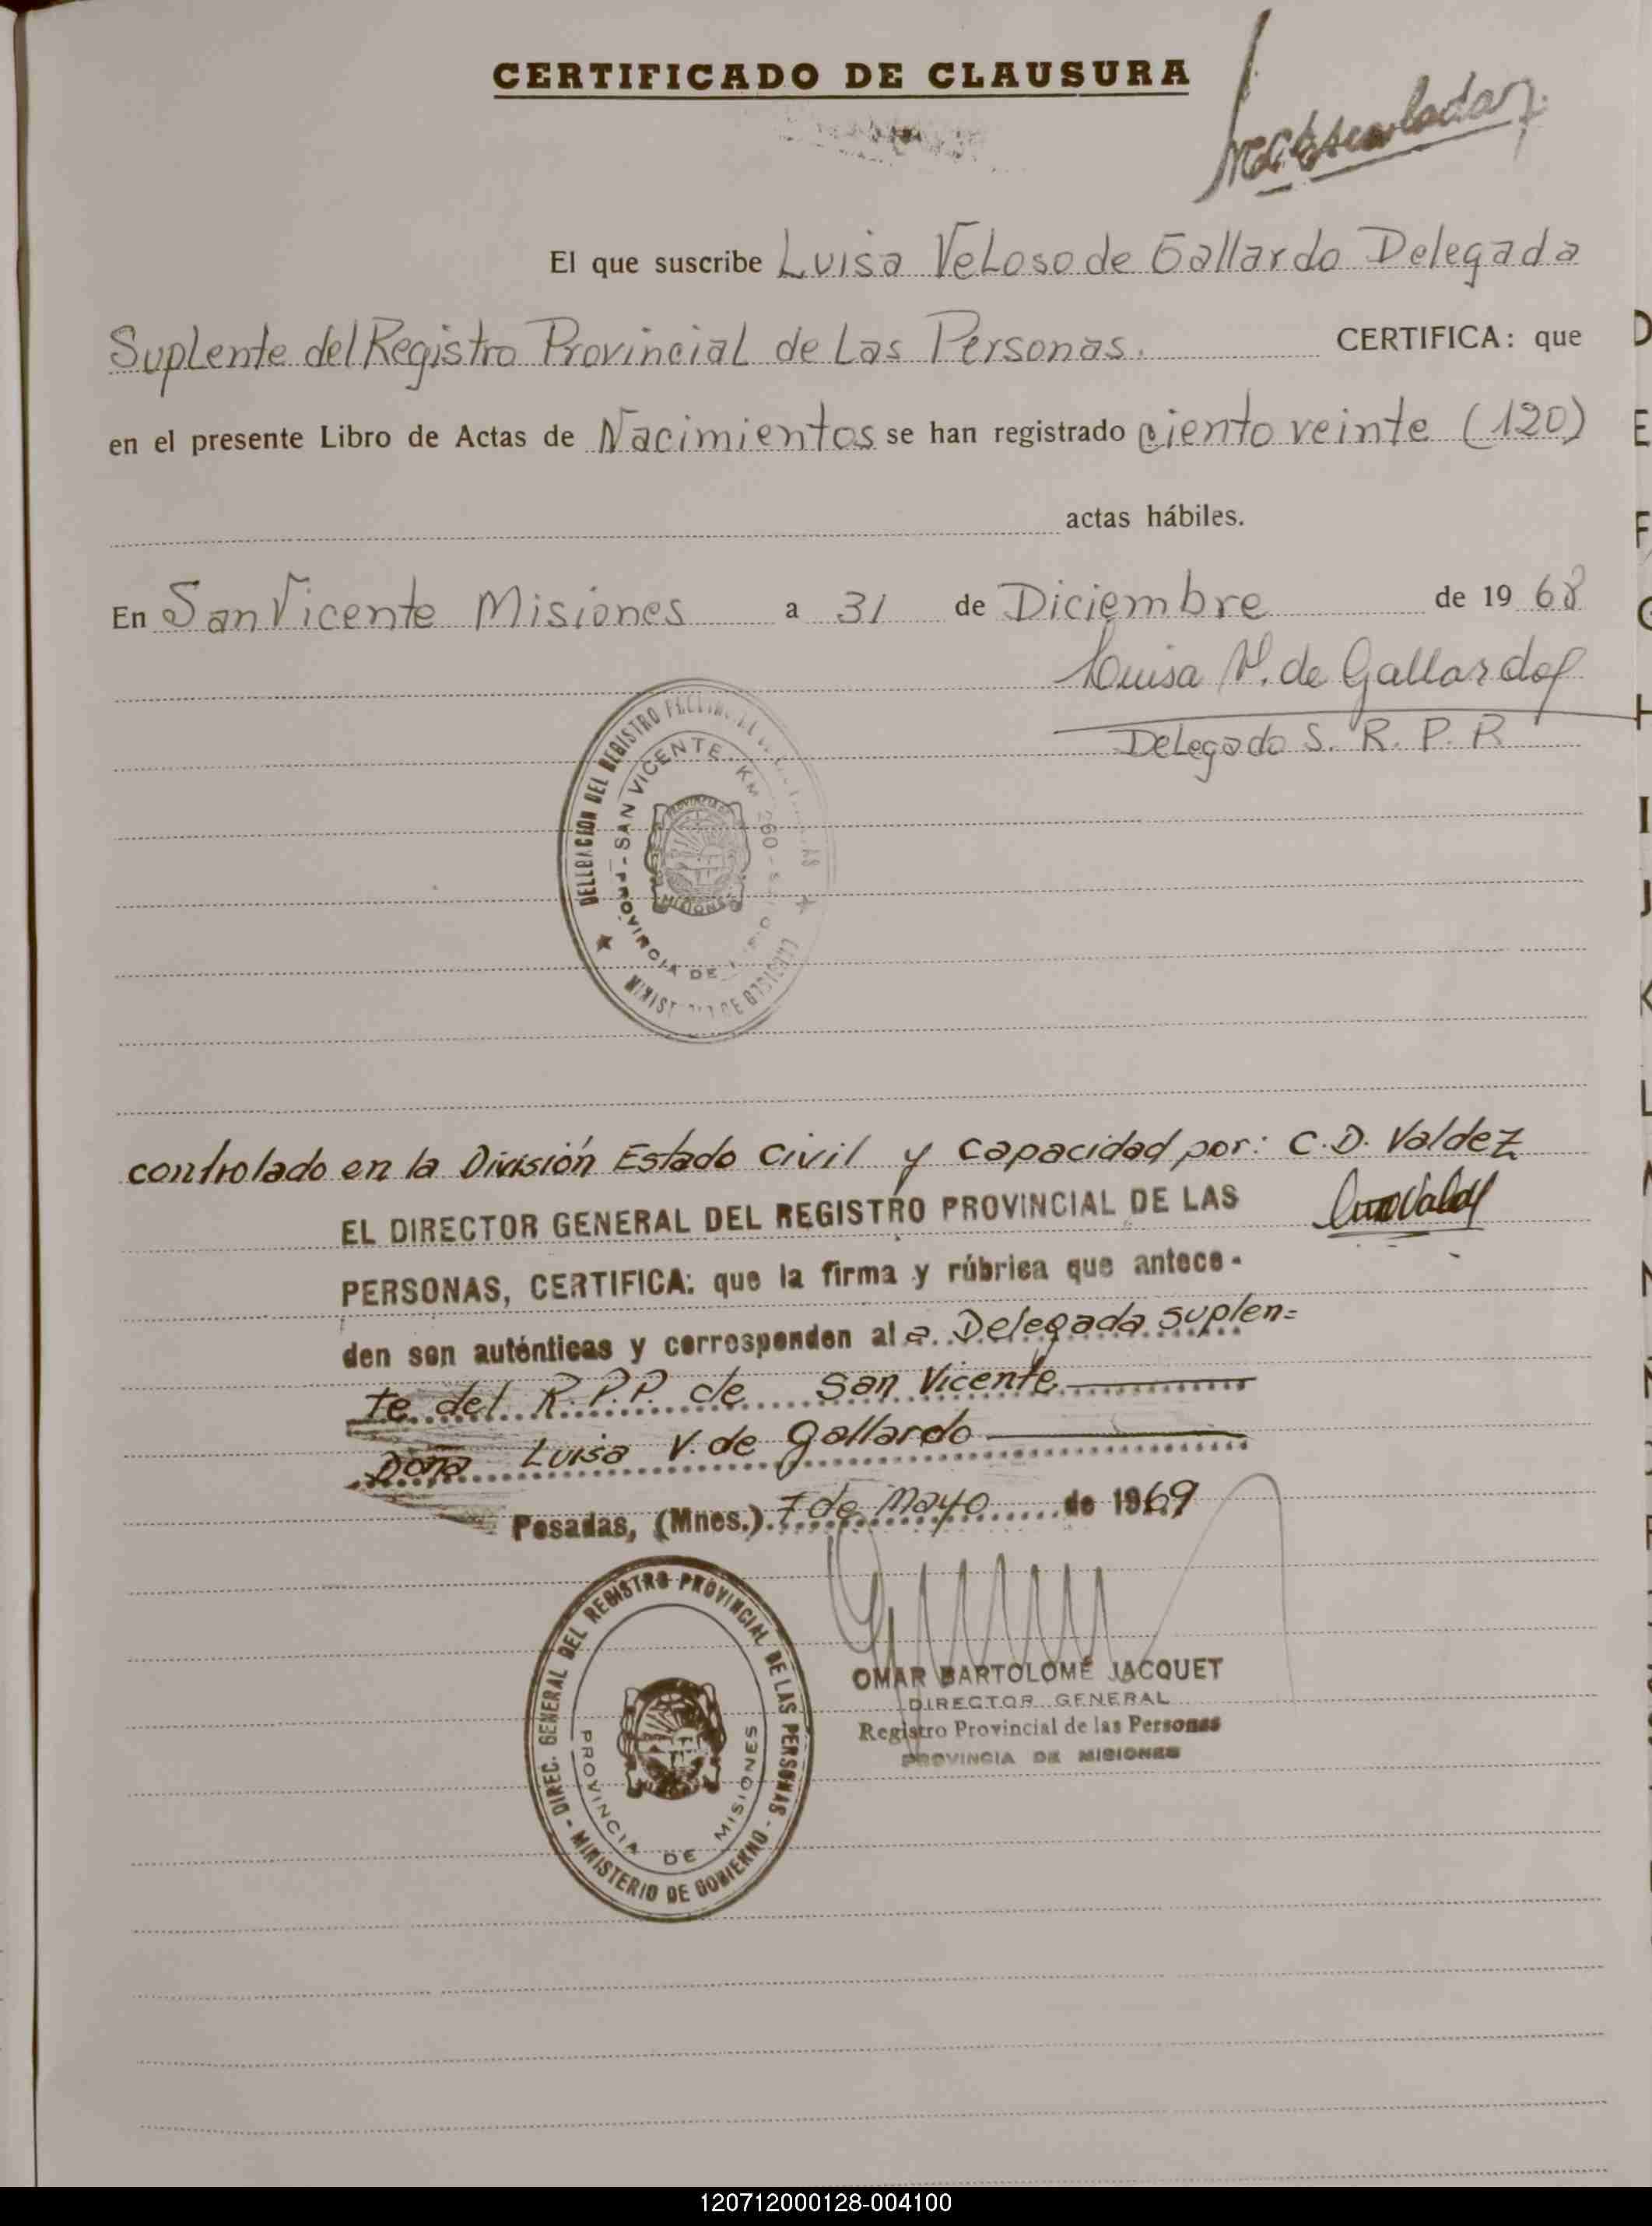 CERTIFICADO DE CLAUSURA
El que suscribe Luisa Veloso de Gallardo Delegada
Suplente del Registro Provincial de Las Personas. CERTIFICA: que
en el presente Libro de Actas de Nacimientos se han registrado ciento veinte (120)
actas hábiles.
En San Vicente Misiones a 31 de Diciembre de 1968
Luisa V. de Gallardo
Delegada S. R. P. P.
DELEGACION DEL REGISTRO
SAN VICENTE - KM 260
PROVINCIA DE
PROVINCIA
MISIONES
controlado en la División Estado Civil y Capacidad por: C. D. Valdez
EL DIRECTOR GENERAL DEL REGISTRO PROVINCIAL DE LAS
PERSONAS, CERTIFICA: que la firma y rúbrica que antece-
den son auténticas y corresponden al a Delegada suplen=
te del R.P.P. de San Vicente
Doña Luisa V. de Gallardo
Posadas, (Mnes.) 7 de Mayo de 1969
DIREC. GENERAL DEL REGISTRO PROVINCIAL DE LAS PERSONAS - MINISTERIO DE GOBIERNO -
PROVINCIA DE MISIONES
OMAR BARTOLOMÉ JACQUET
DIRECTOR GENERAL
Registro Provincial de las Personas
PROVINCIA DE MISIONES
D
E
F
G
H
I
J
K
L
120712000128-004100